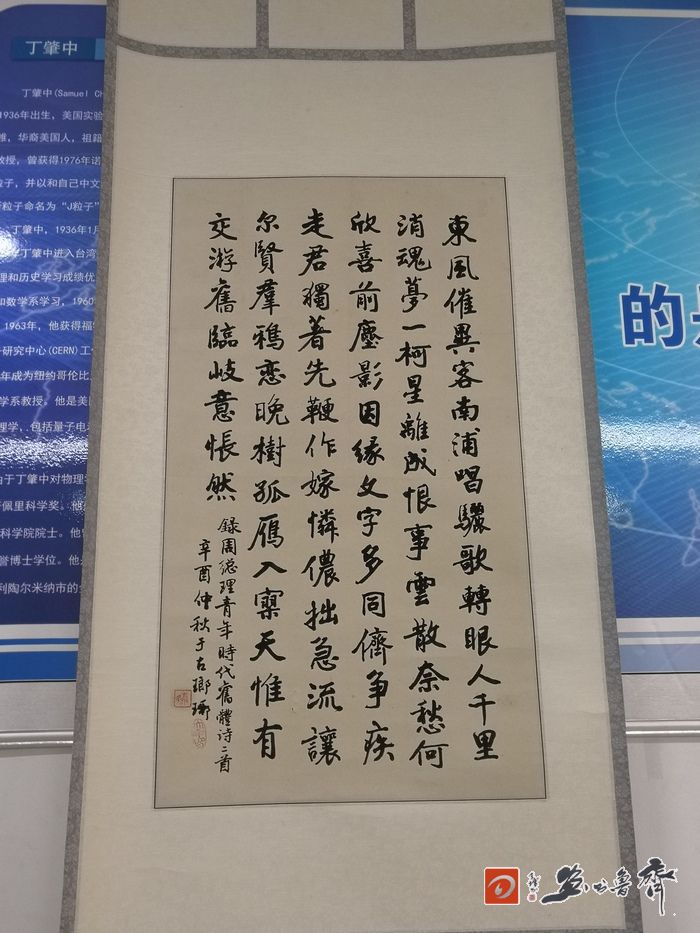 丁肇中
丁肇中(Samuel Ch
1936年出生，美国实验
，华裔美国人，祖籍
教授，曾获得1976年诺
粒子，并以和自己中文
粒子命名为“J粒子”
丁肇中，1936年1月
丁肇中进入台湾
理和历史学习成绩优
和数学系学习，1960
1963年，他获得福
研究中心(CERN)工
年成为纽约哥伦比
学系教授。他是美
理学，包括量子电
由于丁肇中对物理
佩里科学奖。他
科学院院士。他
誉博士学位。他
利陶尔米纳市的
東風催異客南浦唱驪歌轉眼人千里
消魂夢一柯星離成恨事雲散奈愁何
欣喜前塵影因緣文字多同儕争疾
走君獨著先鞭作嫁憐儂拙急流讓
尔賢羣鴉戀晚樹孤雁入寥天惟有
交游舊臨岐意悵然
録周总理青年時代舊體诗二首
辛酉仲秋于古瑯琊
的
齊魯书画